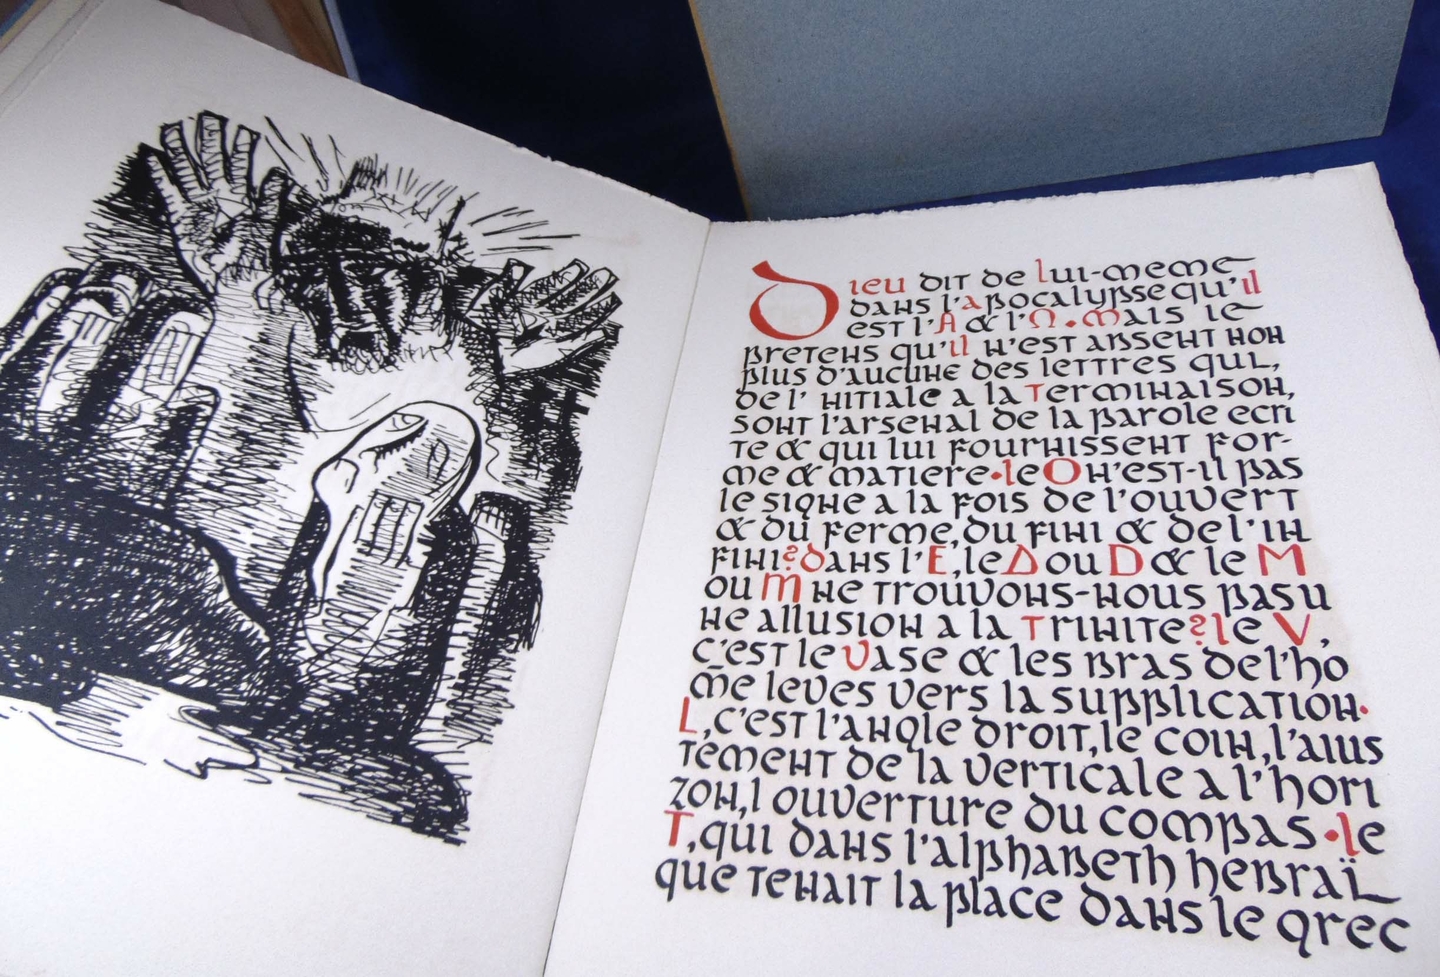 Dieu dit de lui-meme
dans l'apocalypse qu'il
est l'A & l'Ω. mais le
pretens qu'il n'est absent non
plus d'aucune des lettres qui,
de l' nitiale a la Terminaison,
sont l'arsenal de la parole ecri
te & qui lui fournissent for-
me & matiere. le O n'est-il pas
le signe a la fois de l'ouvert
& du ferme, du fini & de l'in
fini? dans l'E, le Δ ou D & le M
ou M ne trouvons-nous pas u
ne allusion a la Trinite? le V,
c'est le vase & les bras de l'ho
m̄e leves vers la supplication.
L, c'est l'angle droit, le coin, l'aius
tement de la verticale a l'hori
zon, l ouverture du compas. le
T, qui dans l'alphabeth hebraï
que tenait la place dans le grec